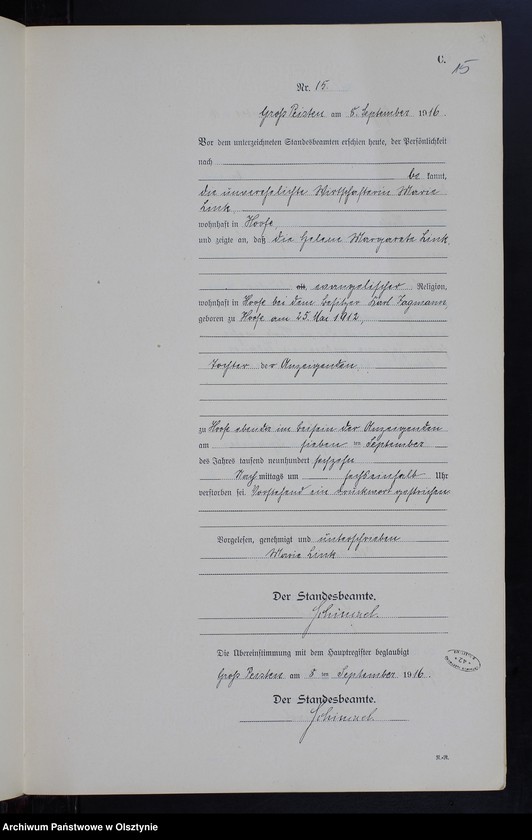 C.
15
Nr. 15.
Groß Peisten am 8. September 1916.
Vor dem unterzeichneten Standesbeamten erschien heute, der Persönlichkeit
nach
be kannt,
die unverehelichte Wirtschafterin Marie
Link,
wohnhaft in Hoofe,
und zeigte an, daß die Helene Margarete Link,
evangelischer Religion,
wohnhaft in Hoofe bei dem Besitzer Karl
geboren zu Hoofe am 25. Mai 1912,
Tochter der Anzeigenden
zu Hoofe ebenda im Beisein der Anzeigenden
am sieben ten September
des Jahres tausend neunhundert sechzehn
Nach mittags um Uhr
verstorben sei. Vorstehend ein Druckwort gestrichen
Vorgelesen, genehmigt und unterschrieben
Marie Link
Der Standesbeamte.
Schimmel.
Die Übereinstimmung mit dem Hauptregister beglaubigt
Groß Peisten am 8 ten September 1916.
Der Standesbeamte.
Schimmel.
Archiwum Państwowe w Olsztynie